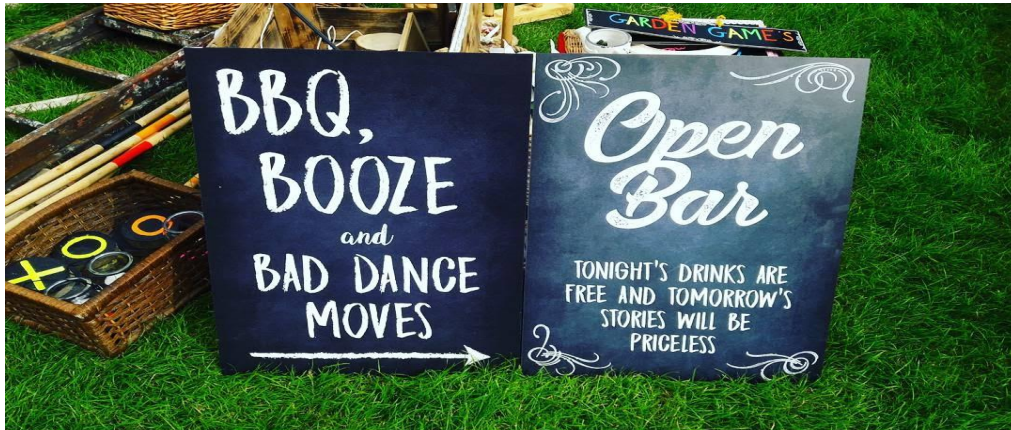 GARDEN GAME'S
BBQ,
BOOZE
and
BAD DANCE
MOVES
Open
Bar
TONIGHT'S DRINKS ARE
FREE AND TOMORROW'S
STORIES WILL BE
PRICELESS
X
O